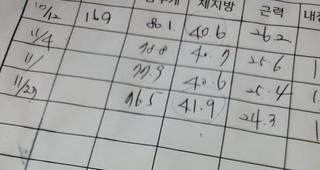 체지방 근력
10/12 169 80.1 40.6 26.2
11/4 78.8 40.7 25.6
11/ 77.9 40.6 25.4
11/23 76.5 41.9 24.3